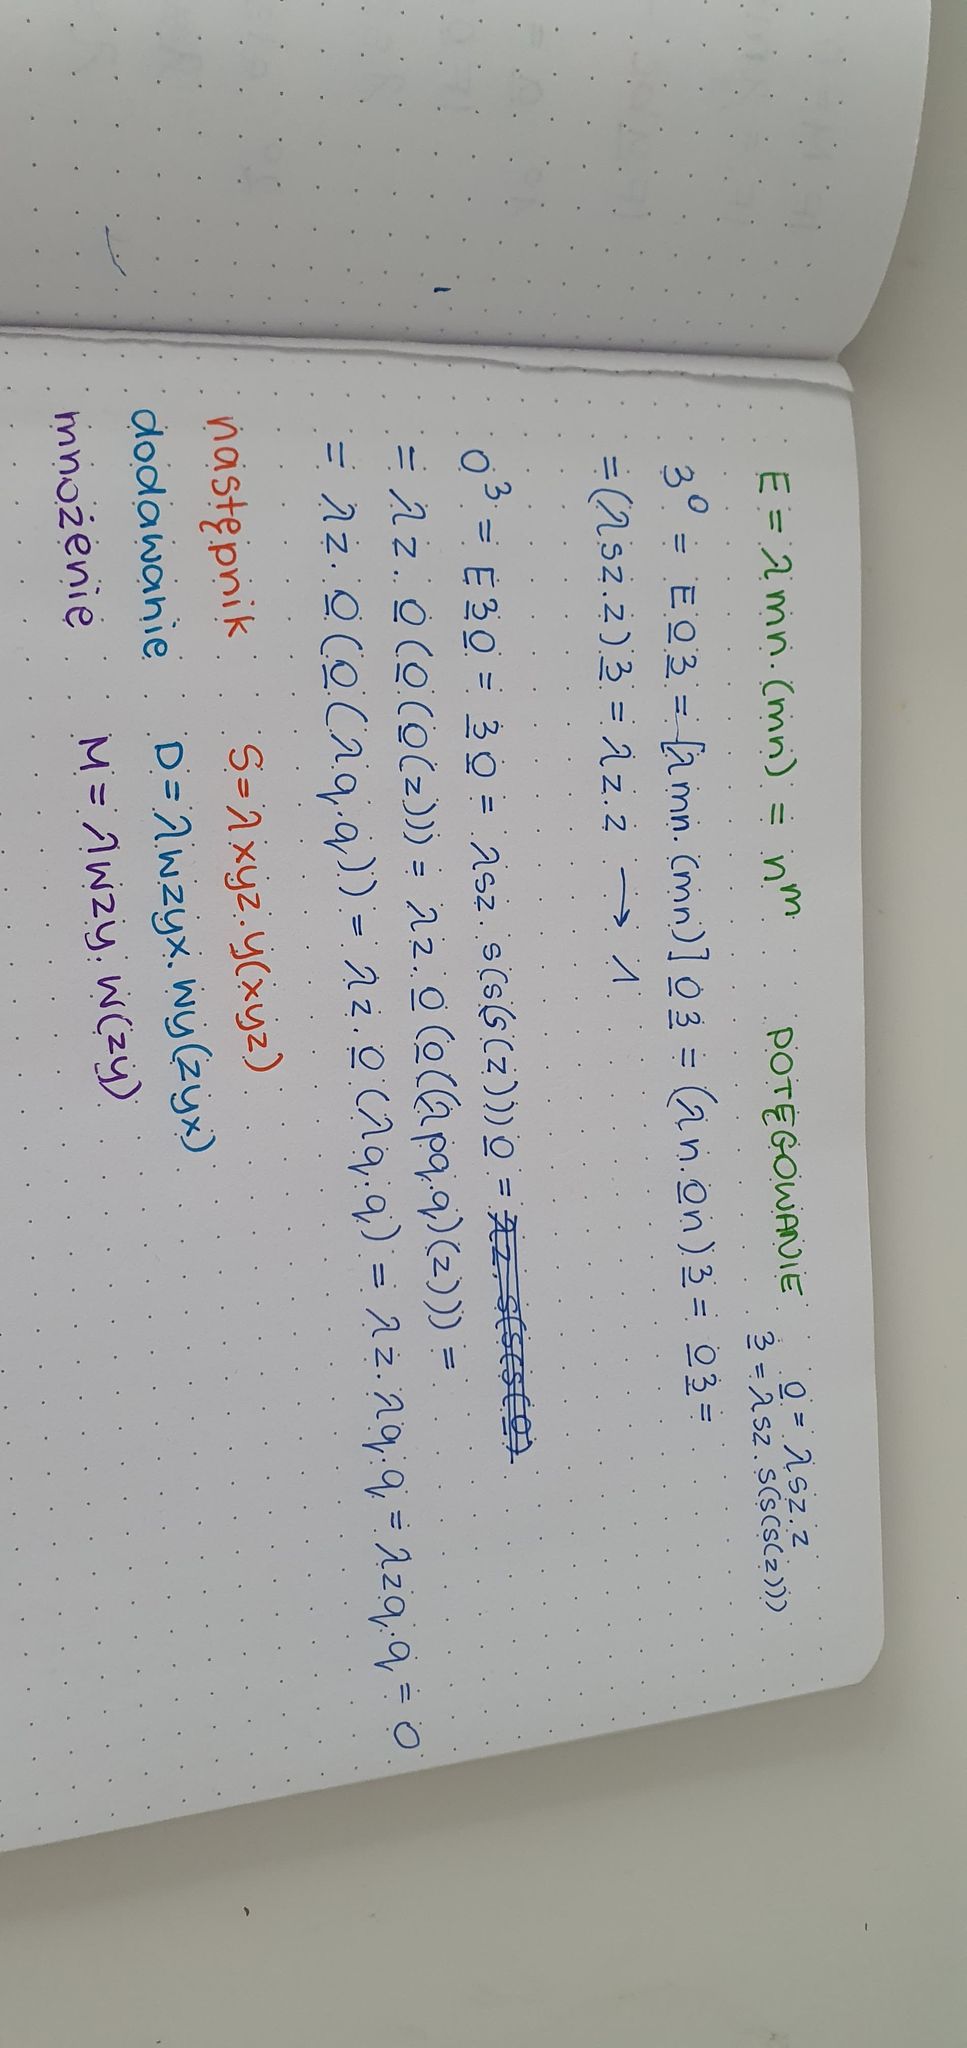 E = λmn.(mn) = n^m POTĘGOWANIE
0 = λsz.z
3 = λsz.s(s(s(z)))
3^0 = E 0 3 = [λmn.(mn)] 0 3 = (λn.0n) 3 = 0 3 =
= (λsz.z) 3 = λz.z → 1
0^3 = E 3 0 = 3 0 = λsz.s(s(s(z))) 0 = λz.s(s(s(0)
= λz.0(0(0(z))) = λz.0(0((λpq.q)(z))) =
= λz.0(0(λq.q)) = λz.0(λq.q) = λz.λq.q = λzq.q = 0
następnik S = λxyz.y(xyz)
dodawanie D = λwzyx.wy(zyx)
mnożenie M = λwzy.w(zy)